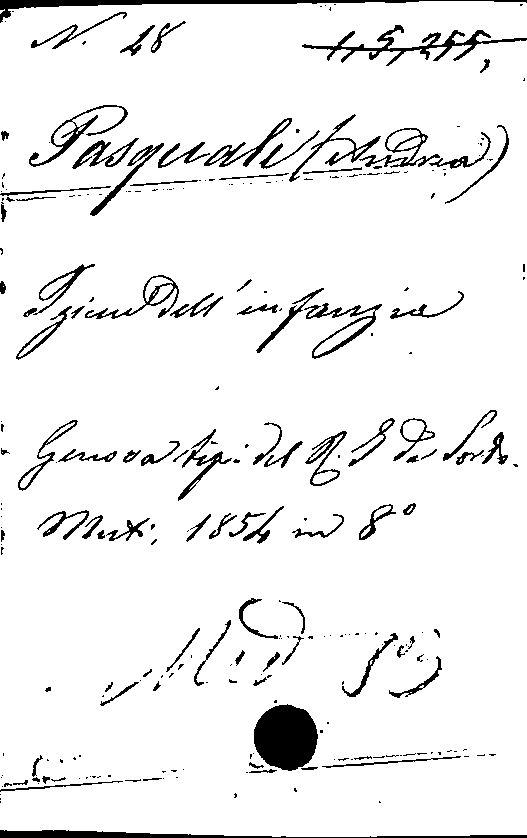 N. 28 1,5,255,
Pasquali (Andrea)
Igiene dell' infanzia
Genova tip: del R. I de Sordo.
Muti, 1854 in 8°
Med